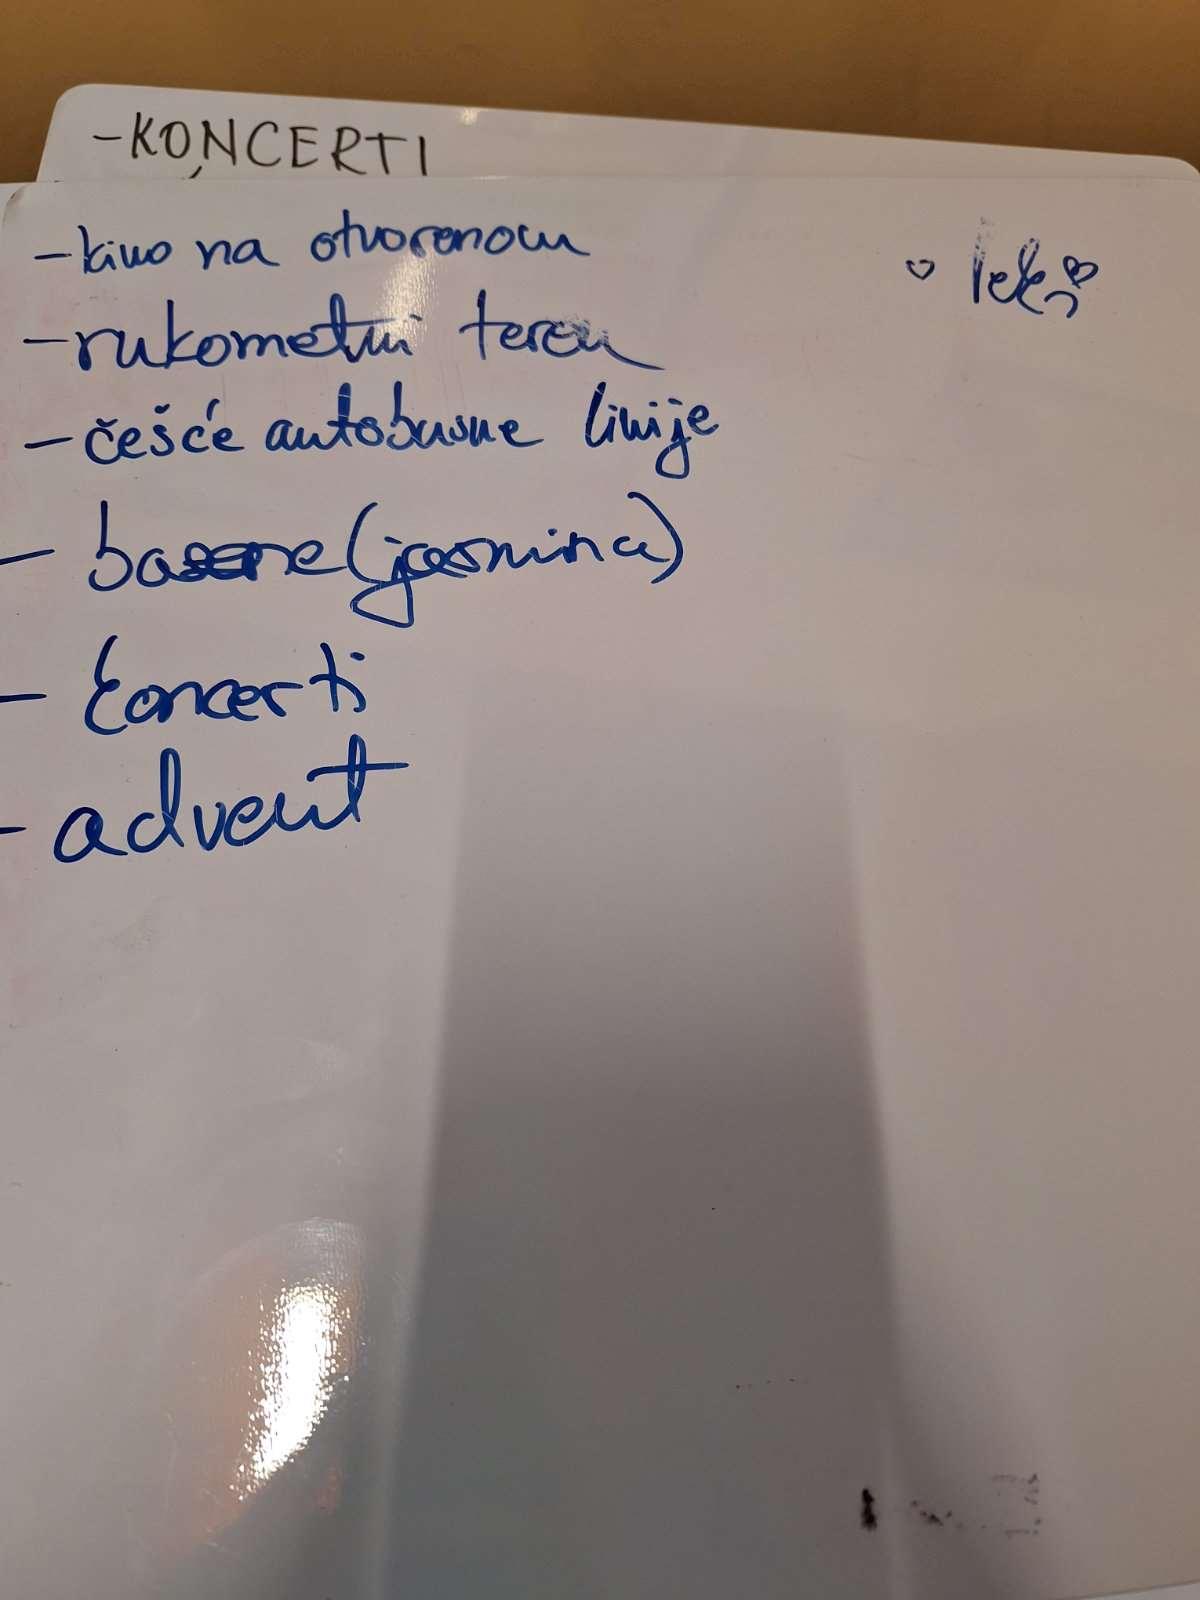 -KONCERTI
-kino na otvorenom
-rukometni teren
-češće autobusne linije
- basene (jasmina)
- koncerti
- advent